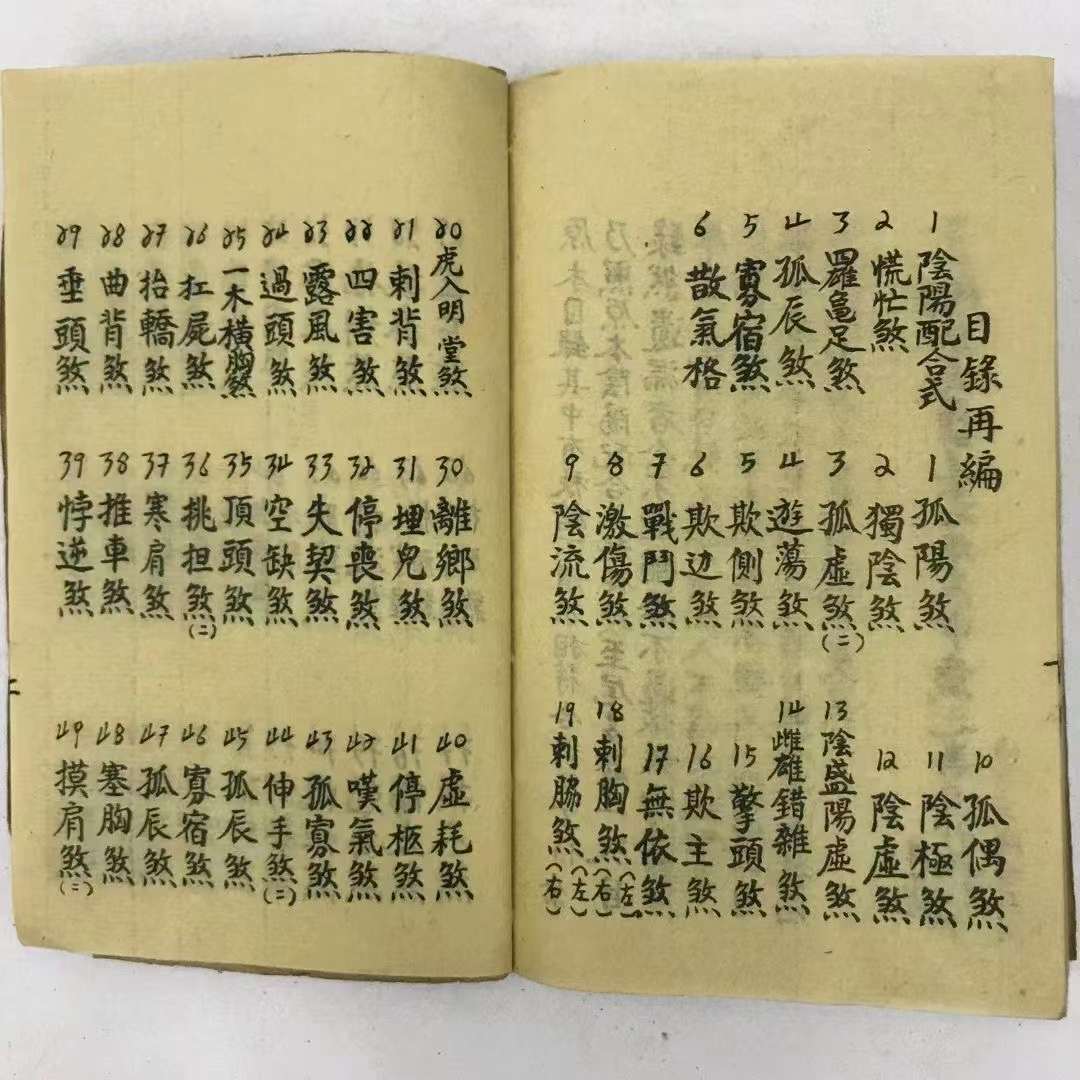 目錄再編
1 陰陽配合式
2 慌忙煞
3 羅亀足煞
4 孤辰煞
5 寡宿煞
6 散氣格
1 孤陽煞
2 獨陰煞
3 孤虛煞(二)
4 遊蕩煞
5 欺側煞
6 欺边煞
7 戰鬥煞
8 激傷煞
9 陰流煞
10 孤偶煞
11 陰極煞
12 陰虛煞
13 陰盛陽虛煞
14 雌雄錯雜煞
15 擎頭煞
16 欺主煞
17 無依煞
18 刺胸煞(左)(右)
19 刺脇煞(左)(右)
20 虎入明堂煞
21 刺背煞
22 四害煞
23 露風煞
24 過頭煞
25 一木橫胸煞
26 扛屍煞
27 抬轎煞
28 曲背煞
29 垂頭煞
30 離鄉煞
31 埋兒煞
32 停喪煞
33 失契煞
34 空缺煞
35 頂頭煞
36 挑担煞(二)
37 寒肩煞
38 推車煞
39 悖逆煞
40 虛耗煞
41 停柩煞
42 嘆氣煞
43 孤寡煞
44 伸手煞(二)
45 孤辰煞
46 寡宿煞
47 孤辰煞
48 塞胸煞
49 摸肩煞(二)